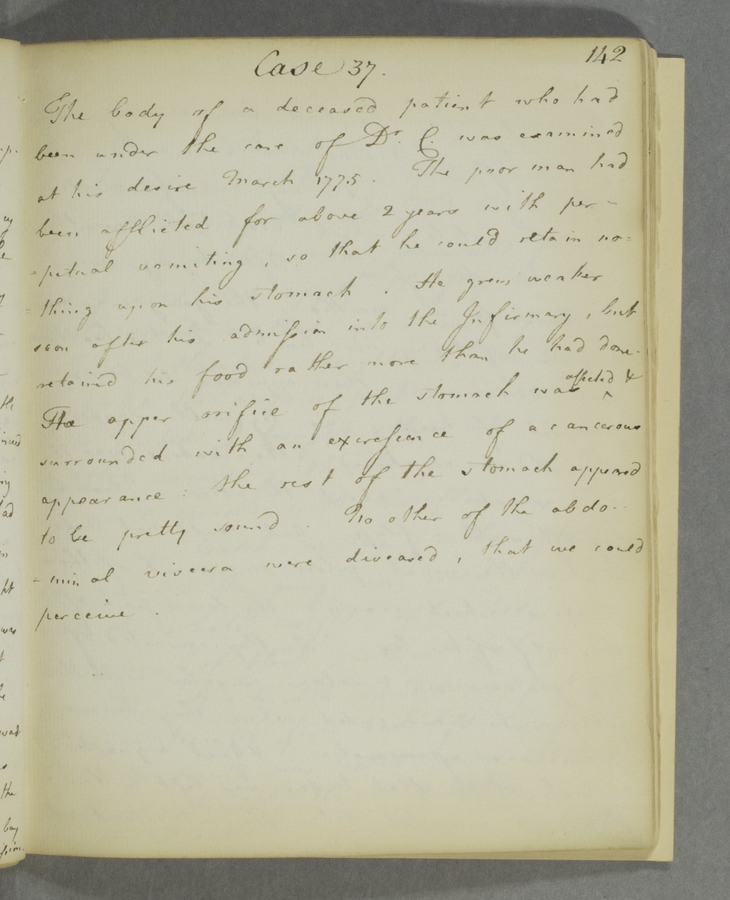 Case 37.
142
The body of a deceased patient who had
been under the care of Dr. C. was examined
at his desire March 1775. The poor man had
been afflicted for above 2 years with per-
-petual vomiting, so that he could retain no=
=thing upon his stomach. He grew weaker
soon after his admission into the Infirmary, but
retained his food rather more than he had done.
affected &
The upper orifice of the stomach was ^
surrounded with an excrescence of a cancerous
appearance: the rest of the stomach appeared
to be pretty sound. No other of the abdo-
-minal viscera were diseased, that we could
perceive.